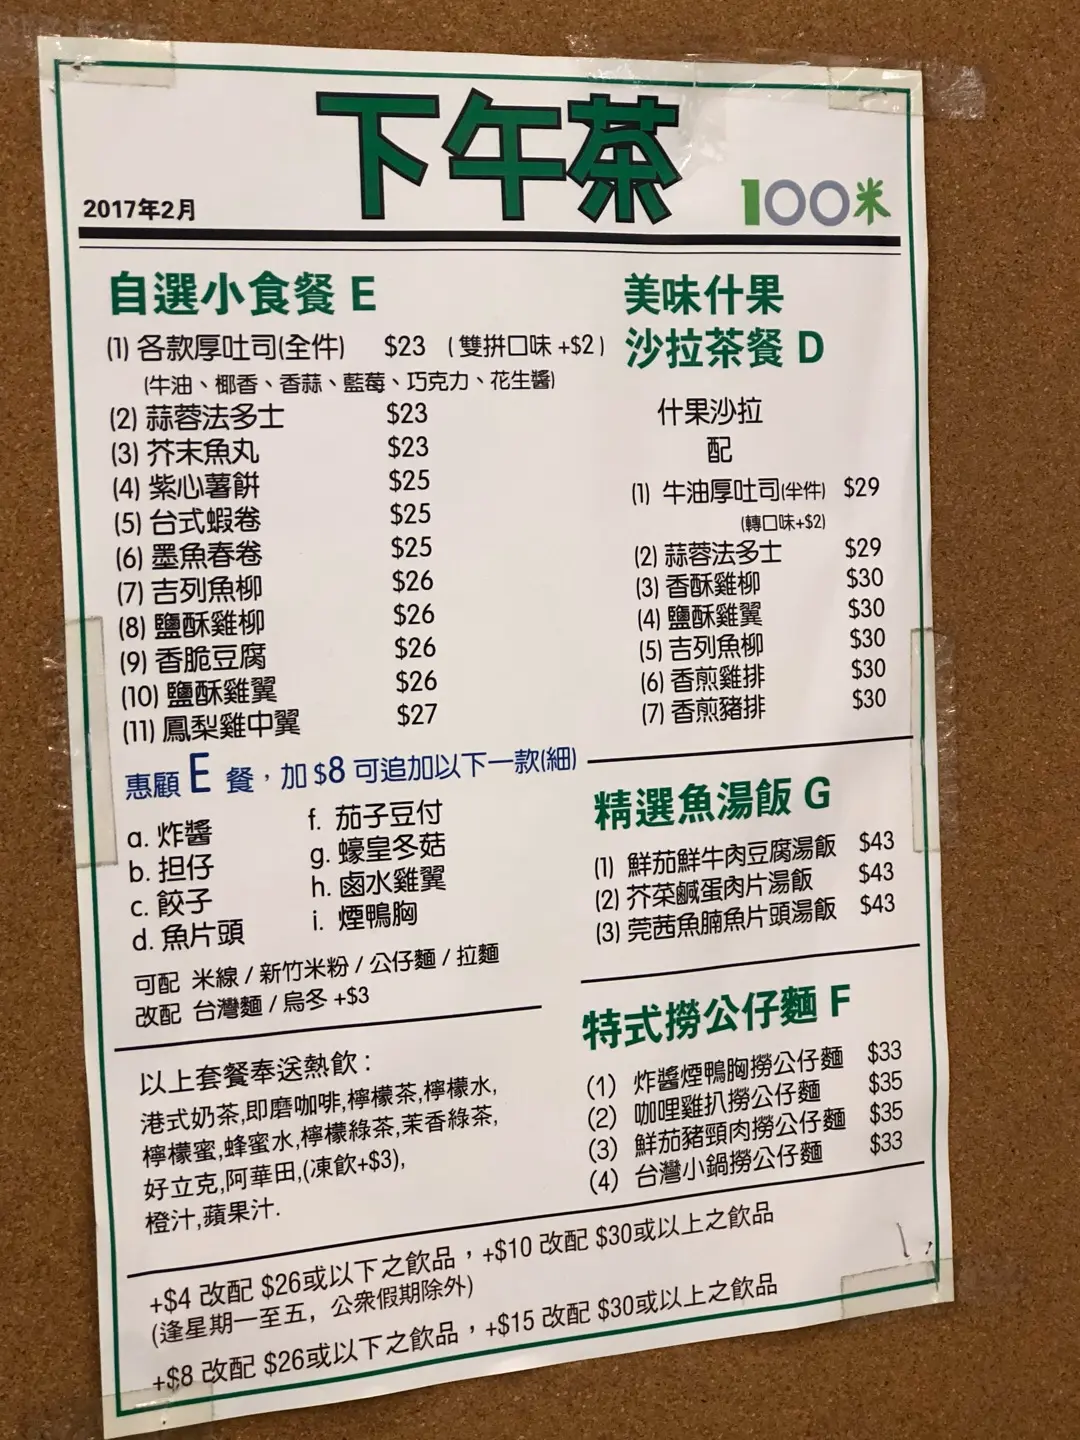 下午茶
2017年2月
100米
自選小食餐 E
(1) 各款厚吐司(全件) $23 (雙拼口味 +$2)
(牛油、椰香、香蒜、藍莓、巧克力、花生醬)
(2) 蒜蓉法多士 $23
(3) 芥末魚丸 $23
(4) 紫心薯餅 $25
(5) 台式蝦卷 $25
(6) 墨魚春卷 $25
(7) 吉列魚柳 $26
(8) 鹽酥雞柳 $26
(9) 香脆豆腐 $26
(10) 鹽酥雞翼 $26
(11) 鳳梨雞中翼 $27
惠顧 E 餐，加 $8 可追加以下一款(細)
a. 炸醬
b. 担仔
c. 餃子
d. 魚片頭
f. 茄子豆付
g. 蠔皇冬菇
h. 鹵水雞翼
i. 煙鴨胸
可配 米線 / 新竹米粉 / 公仔麵 / 拉麵
改配 台灣麵 / 烏冬 +$3
以上套餐奉送熱飲 :
港式奶茶,即磨咖啡,檸檬茶,檸檬水,
檸檬蜜,蜂蜜水,檸檬綠茶,茉香綠茶,
好立克,阿華田,(凍飲+$3),
橙汁,蘋果汁.
美味什果
沙拉茶餐 D
什果沙拉
配
(1) 牛油厚吐司(半件) $29
(轉口味+$2)
(2) 蒜蓉法多士 $29
(3) 香酥雞柳 $30
(4) 鹽酥雞翼 $30
(5) 吉列魚柳 $30
(6) 香煎雞排 $30
(7) 香煎豬排 $30
精選魚湯飯 G
(1) 鮮茄鮮牛肉豆腐湯飯 $43
(2) 芥菜鹹蛋肉片湯飯 $43
(3) 莞茜魚腩魚片頭湯飯 $43
特式撈公仔麵 F
(1) 炸醬煙鴨胸撈公仔麵 $33
(2) 咖哩雞扒撈公仔麵 $35
(3) 鮮茄豬頸肉撈公仔麵 $35
(4) 台灣小鍋撈公仔麵 $33
+$4 改配 $26或以下之飲品，+$10 改配 $30或以上之飲品
(逢星期一至五，公眾假期除外)
+$8 改配 $26或以下之飲品，+$15 改配 $30或以上之飲品